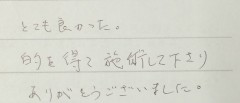 とても良かった。
的を得て施術して下さり
ありがとうございました。